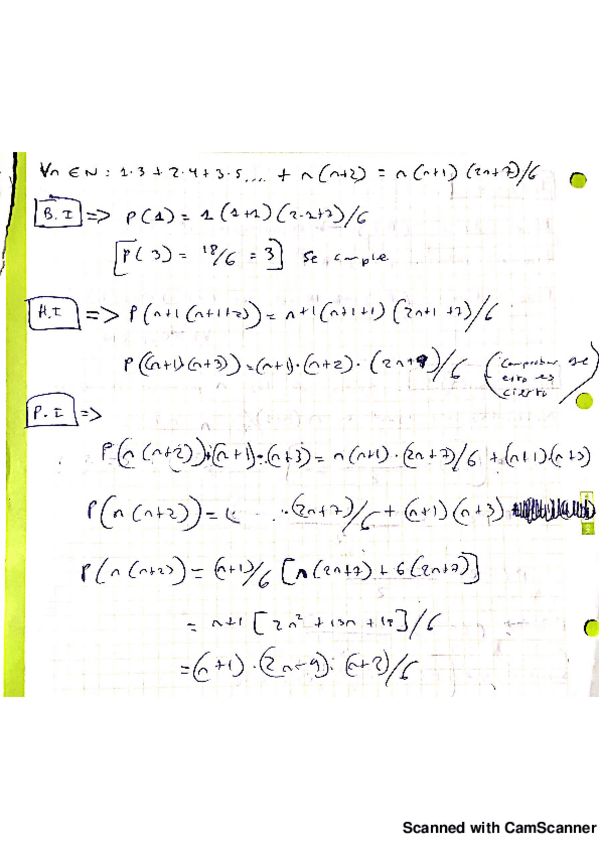 ∀n ∈ N : 1·3 + 2·4 + 3·5 ... + n(n+2) = n(n+1)(2n+7)/6
B.I => P(1) = 1(1+1)(2·1+7)/6
[P(3) = 18/6 = 3] Se cumple
H.I => P(n+1(n+1+2)) = n+1(n+1+1)(2n+1+7)/6
P((n+1)(n+3)) = (n+1)·(n+2)·(2n+9)/6 (Comprobar que
esto es
cierto)
P.I =>
P(n(n+2))+(n+1)·(n+3) = n(n+1)·(2n+7)/6 + (n+1)(n+3)
P(n(n+2)) = ·(2n+7)/6 + (n+1)(n+3)
P(n(n+2)) = (n+1)/6 [n(2n+7) + 6(2n+7)]
= n+1 [2n² + 13n + 18]/6
= (n+1)·(2n+9)·(n+2)/6
Scanned with CamScanner